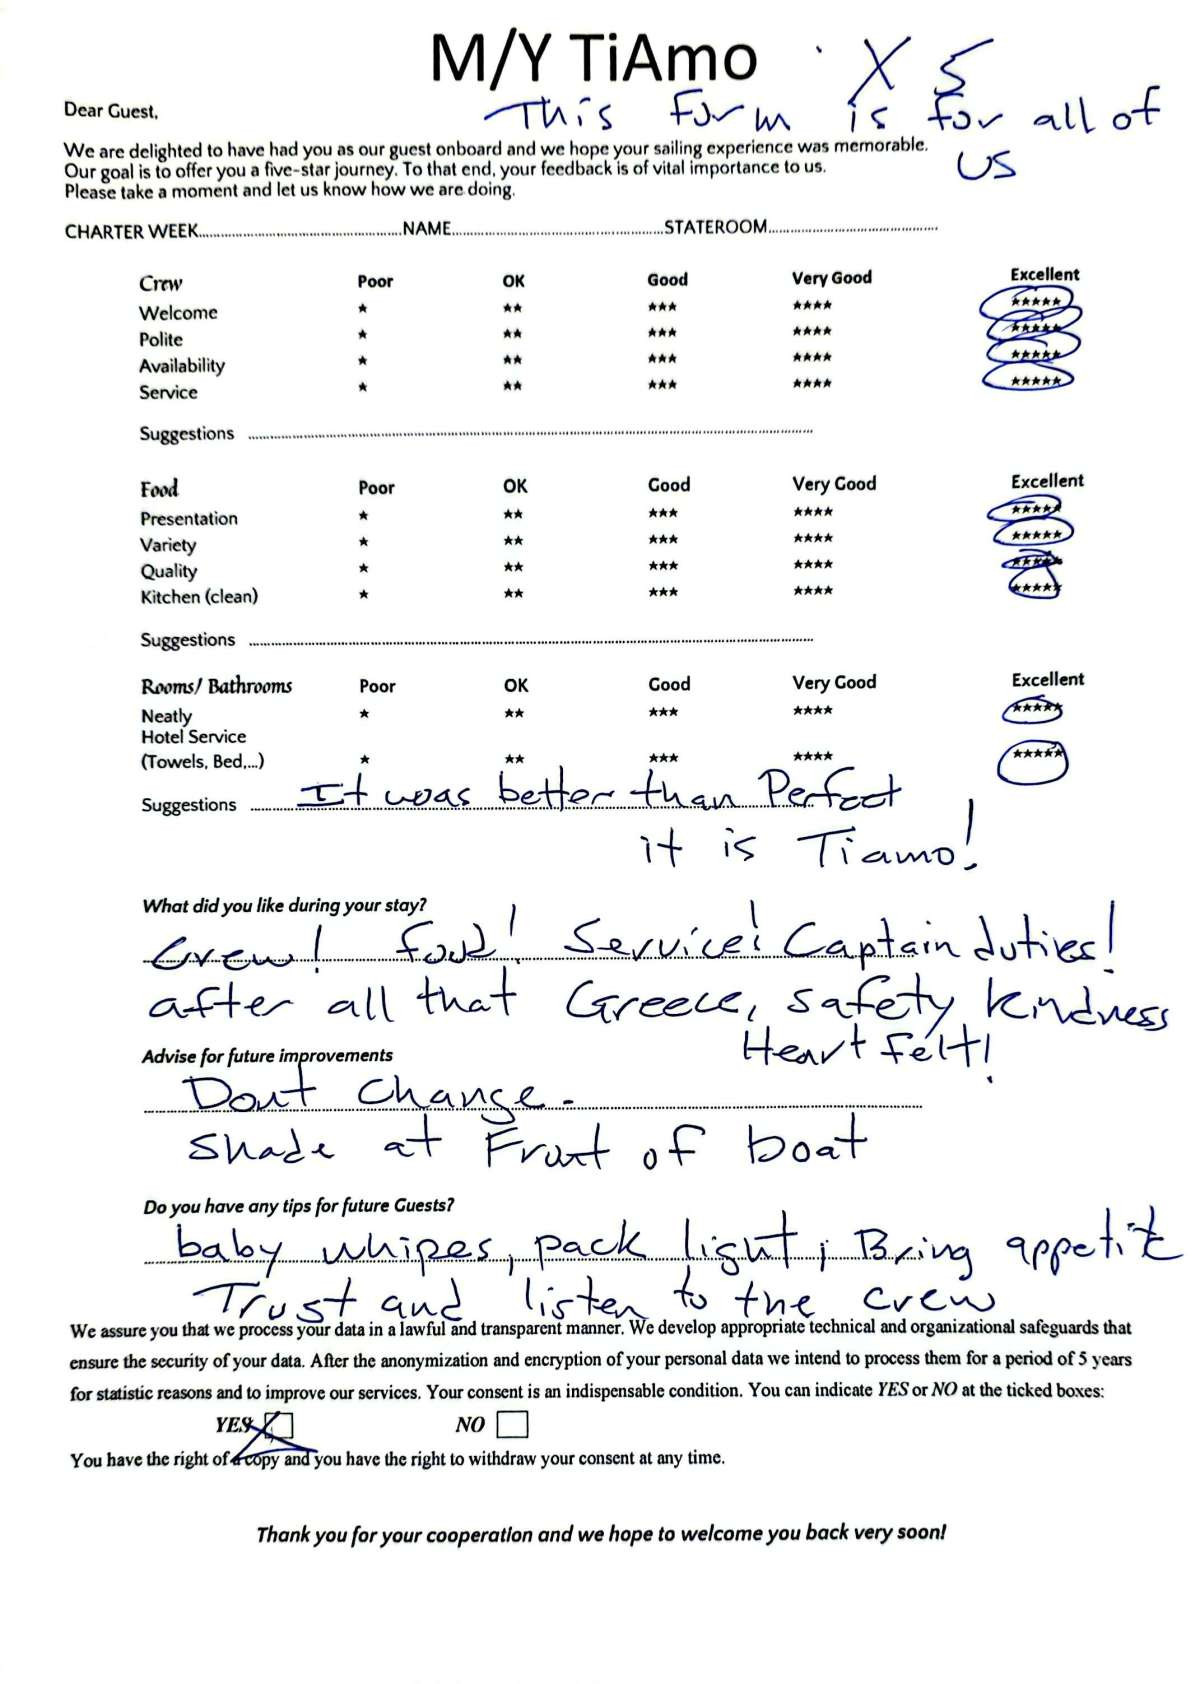 M/Y TiAmo X 5
Dear Guest,
This Form is for all of
us
We are delighted to have had you as our guest onboard and we hope your sailing experience was memorable.
Our goal is to offer you a five-star journey. To that end, your feedback is of vital importance to us.
Please take a moment and let us know how we are doing.
CHARTER WEEK..................NAME..................STATEROOM..................
Crew Poor OK Good Very Good Excellent
Welcome ★ ★★ ★★★ ★★★★ ★★★★★
Polite ★ ★★ ★★★ ★★★★ ★★★★★
Availability ★ ★★ ★★★ ★★★★ ★★★★★
Service ★ ★★ ★★★ ★★★★ ★★★★★
Suggestions ..................
Food Poor OK Good Very Good Excellent
Presentation ★ ★★ ★★★ ★★★★ ★★★★★
Variety ★ ★★ ★★★ ★★★★ ★★★★★
Quality ★ ★★ ★★★ ★★★★ ★★★★★
Kitchen (clean) ★ ★★ ★★★ ★★★★ ★★★★★
Suggestions ..................
Rooms/ Bathrooms Poor OK Good Very Good Excellent
Neatly ★ ★★ ★★★ ★★★★ ★★★★★
Hotel Service
(Towels, Bed,...) ★ ★★ ★★★ ★★★★ ★★★★★
Suggestions It was better than Perfect
it is Tiamo!
What did you like during your stay?
Crew! food! Service! Captain duties!
after all that Greece, safety kindness
Heart felt!
Advise for future improvements
Dont Change.
Shade at Front of boat
Do you have any tips for future Guests?
baby whipes, pack light, Bring appetite
Trust and listen to the crew
We assure you that we process your data in a lawful and transparent manner. We develop appropriate technical and organizational safeguards that
ensure the security of your data. After the anonymization and encryption of your personal data we intend to process them for a period of 5 years
for statistic reasons and to improve our services. Your consent is an indispensable condition. You can indicate YES or NO at the ticked boxes:
YES NO
You have the right of copy and you have the right to withdraw your consent at any time.
Thank you for your cooperation and we hope to welcome you back very soon!